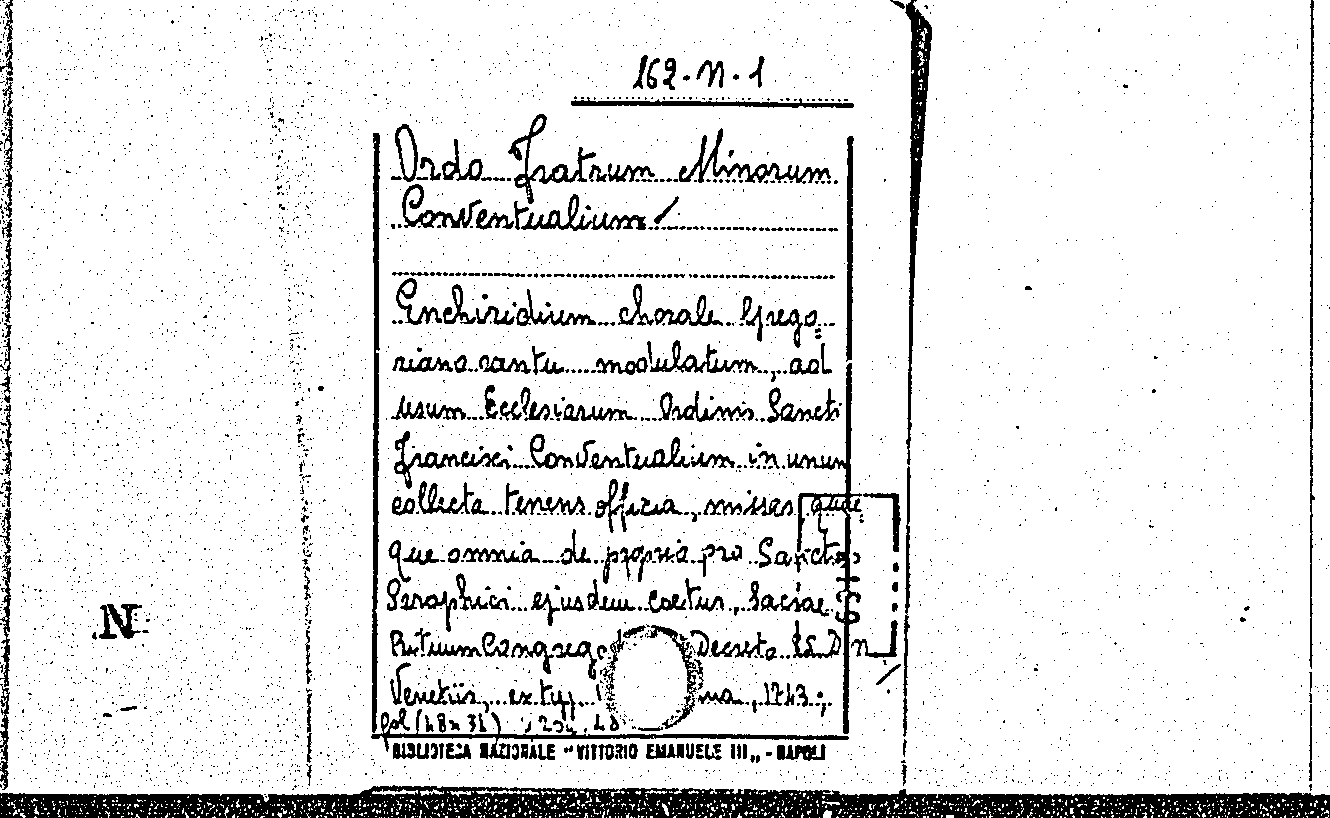 162-N-1
Ordo Fratrum Minorum
Conventualium
Enchiridium chorale Grego=
riano cantu modulatum, ad
usum Ecclesiarum Ordinis Sancti
Francisci Conventualium in unum
collecta tenens officia, missas quae
que omnia de propria pro Sanctos
Seraphici ejusdem Coetus, Sacrae
Rituum Decreto
Venetiis, ex 1743;
N
BIBLIOTECA NAZIONALE "VITTORIO EMANUELE III" - NAPOLI